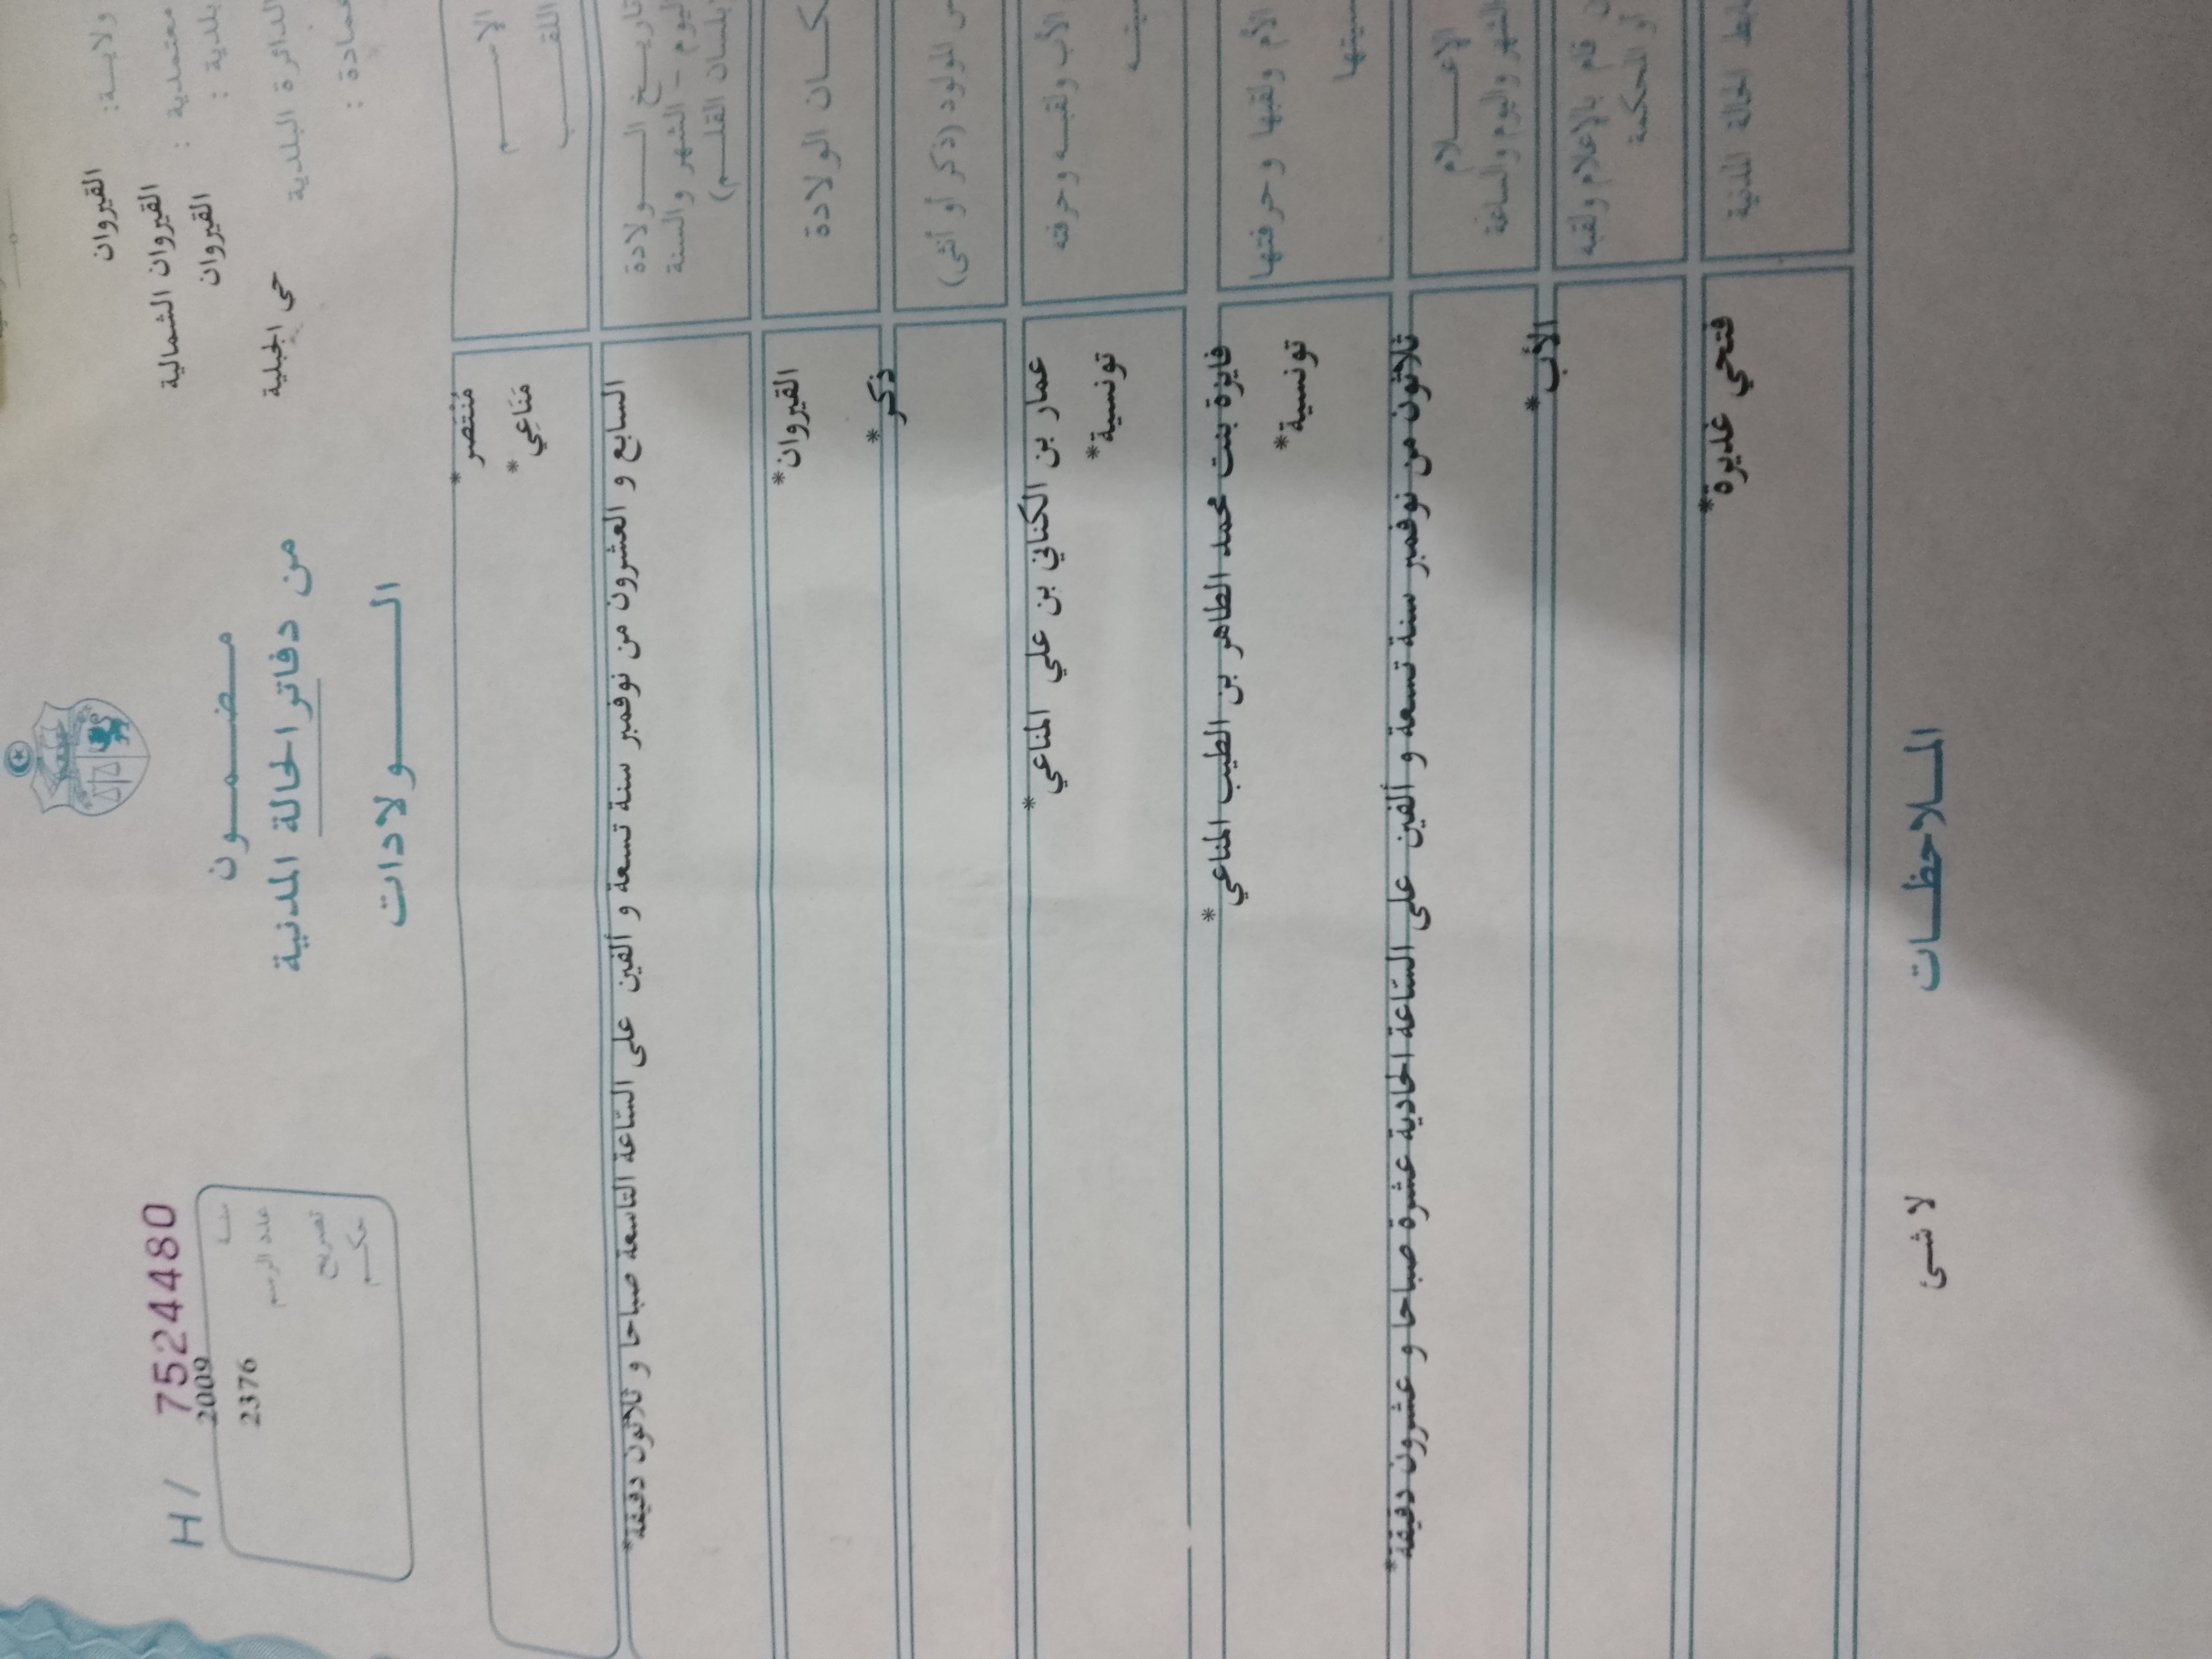 ولاية: القيروان
معتمدية : القيروان الشمالية
بلدية : القيروان
الدائرة البلدية حي الجبلية
عمادة :
مضمون
من دفاتر الحالة المدنية
الولادات
H / 7524480
سنة 2009
عدد الرسم 2376
تصريح
حكم
الاسم مُنْتَصر *
اللقب مَنَاعِي *
تاريخ الولادة السابع و العشرون من نوفمبر سنة تسعة و ألفين على السّاعة التّاسعة صباحا و ثلاثون دقيقة*
اليوم - الشهر والسنة
بلسان القلم)
الولادة القيروان*
المولود (ذكر أو أنثى) ذكر *
الأب ولقبه وحرفته عمار بن الكناني بن علي المناعي *
تونسية*
الأم ولقبها وحرفتها فايزة بنت محمد الطاهر بن الطيب المناعي *
تونسية*
الإعلام ثلاثون من نوفمبر سنة تسعة و ألفين على السّاعة الحادية عشرة صباحا و عشرون دقيقة*
الشهر واليوم والساعة
قام بالإعلام ولقبه الأب *
أو المحكمة
الحالة المدنية فتحي غديرة*
الملاحظات
لا شئ